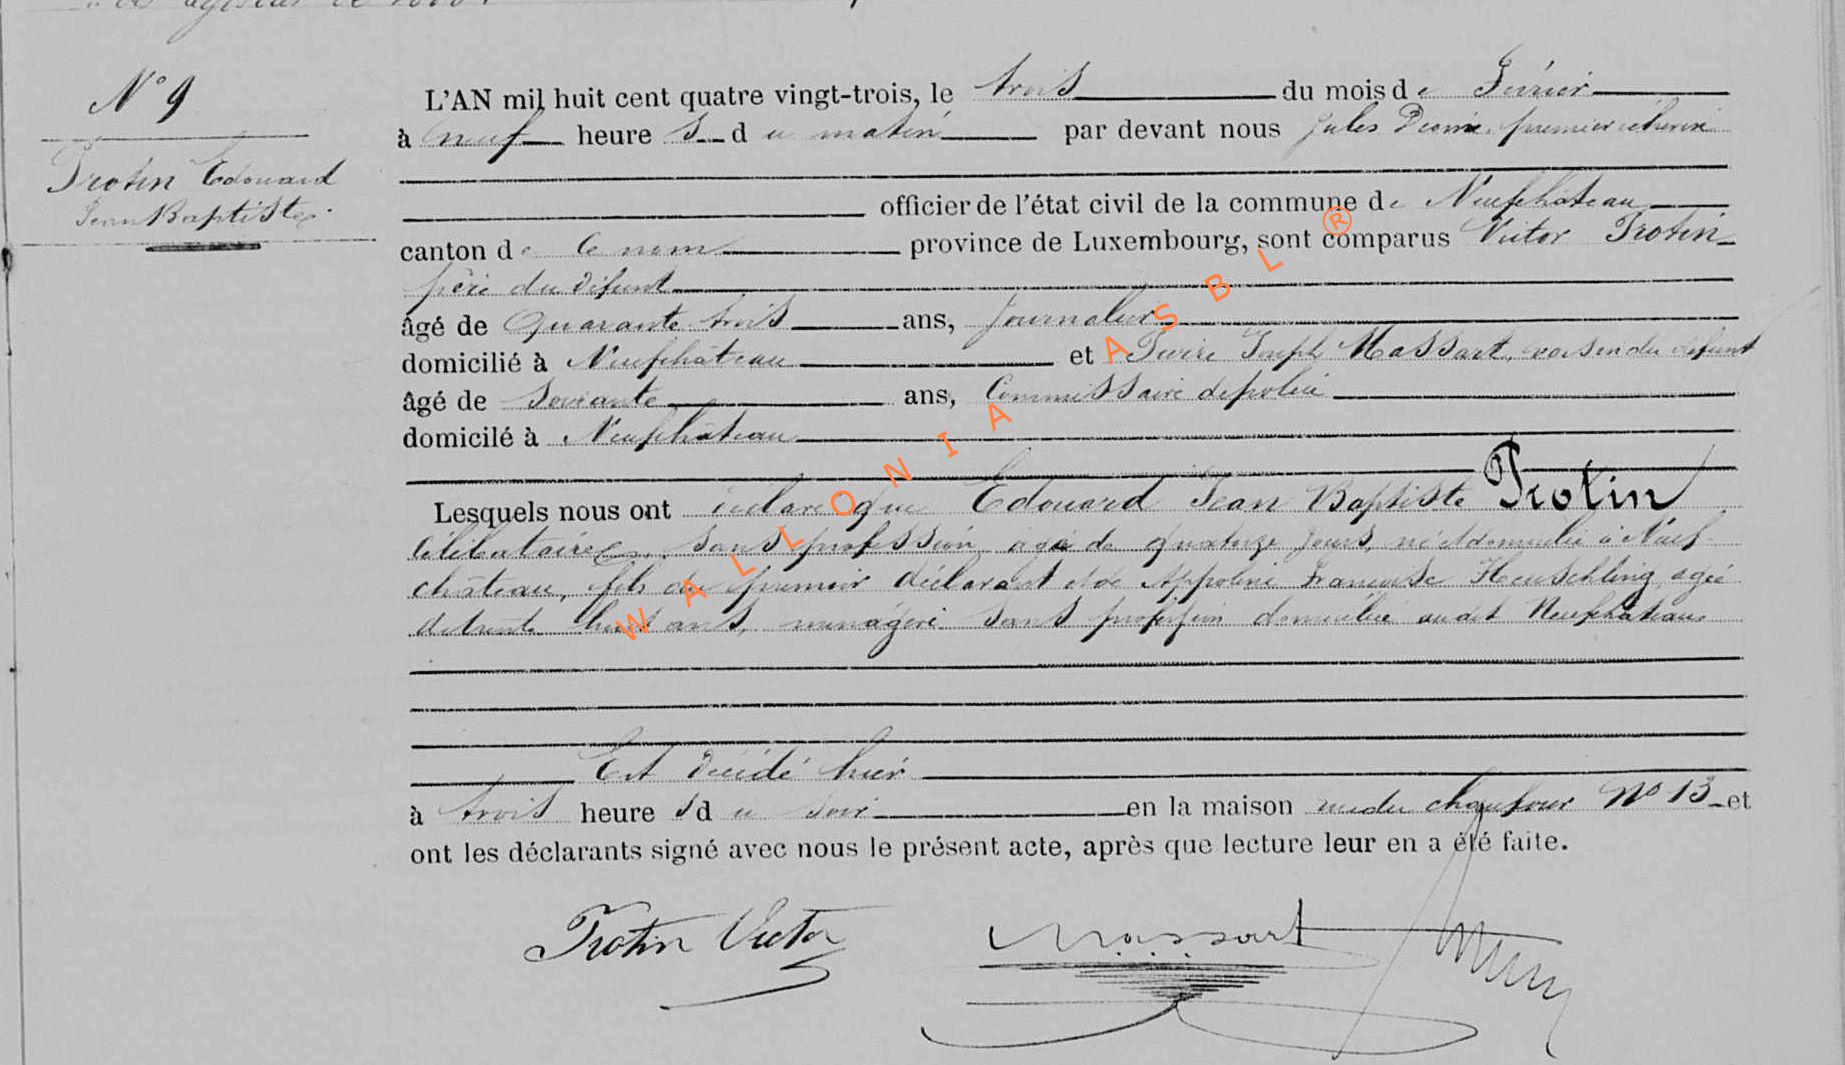 N° 9
Trotin Edouard
Jean Baptiste.
L'AN mil huit cent quatre vingt-trois, le trois du mois de Février
à neuf heures du matin par devant nous Jules premier échevin
officier de l'état civil de la commune de Neufchâteau
canton de ce nom province de Luxembourg, sont comparus Victor Trotin
père du défunt
âgé de Quarante trois ans, Journalier
domicilié à Neufchâteau et Pierre Joseph Massart, voisin du défunt
âgé de Soixante ans, Commissaire de police
domicilé à Neufchâteau
Lesquels nous ont déclaré que Edouard Jean Baptiste Trotin
célibataire, sans profession, agé de quatorze jours, né et domicilié à Neuf-
château, fils du premier déclarant et de Appoline Françoise Heuschling, agée
de trente huit ans, ménagère sans profession domiciliée audit Neufchâteau
Est décédé hier
à trois heures du soir en la maison rue du chaufour N° 13 et
ont les déclarants signé avec nous le présent acte, après que lecture leur en a été faite.
Trotin Victor Massart
WALLONIA ASBL ®